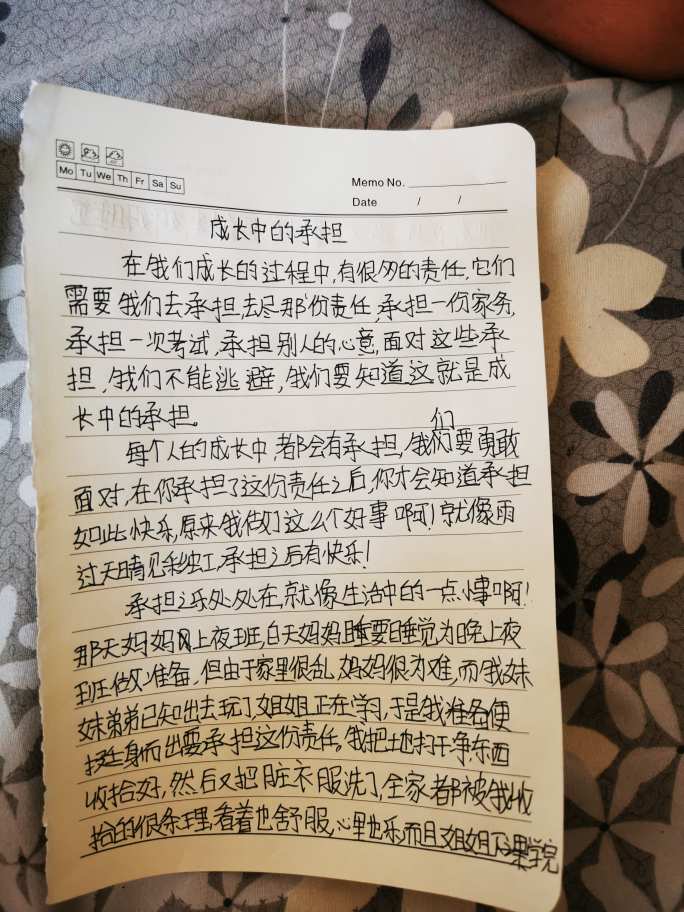 Mo Tu We Th Fr Sa Su
Memo No.
Date / /
成长中的承担
在我们成长的过程中,有很多的责任,它们
需要我们去承担,去尽那份责任,承担一份家务,
承担一次考试,承担别人的心意,面对这些承
担,我们不能逃避,我们要知道这就是成
长中的承担。
每个人的成长中,都会有承担,我们要勇敢
面对,在你承担了这份责任之后,你才会知道承担
如此快乐,原来我做了这么个好事啊!就像雨
过天晴见彩虹,承担之后有快乐!
承担之乐处处在,就像生活中的一点小事啊!
那天妈妈上夜班,白天妈妈要睡觉为晚上夜
班做准备,但由于家里很乱,妈妈很为难,而我妹
妹弟弟已知出去玩了,姐姐正在学习,于是我准备便
挺身而出要承担这份责任。我把地扫干净,东西
收拾好,然后又把脏衣服洗了,全家都被我收
拾的很条理,看着也舒服,心里也乐,而且姐姐下课学完